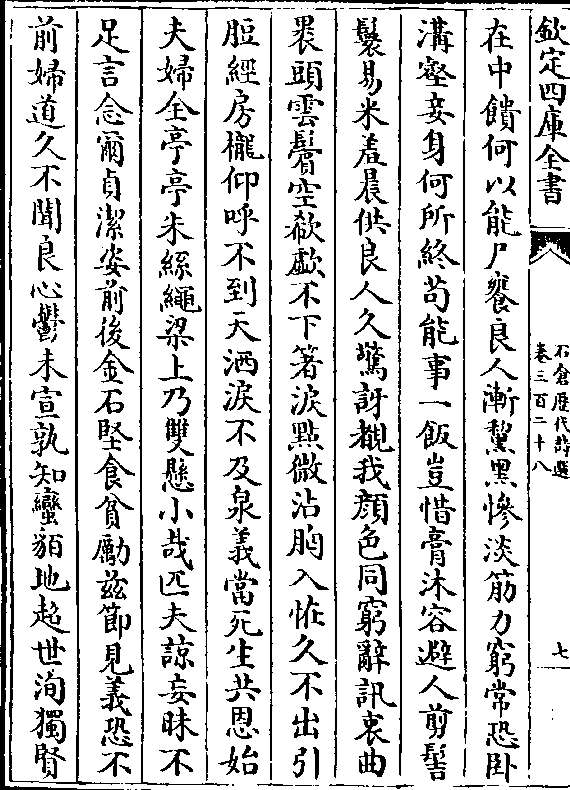 欽定四庫全書
石倉歷代詩選
卷三百二十八
七
在中饋何以能尸饔良人漸黧黑慘淡筋力窮常恐卧
溝壑妾身何所終苟能事一飯豈惜膏沐容避人剪髻
鬟易米羞晨供良人久驚訝覩我顔色同窮辭訊衷曲
褁頭雲鬢空欷歔不下箸淚㸃微沾胸入帷久不出引
脰經房櫳仰呼不到天洒淚不及泉義當死生共恩始
夫婦全亭亭朱絲繩梁上乃雙懸小哉匹夫諒妄昧不
足言念爾貞潔姿前後金石堅食貧勵兹節見義恐不
前婦道久不聞良心鬱未宣孰知蠻貊地超世洵獨賢